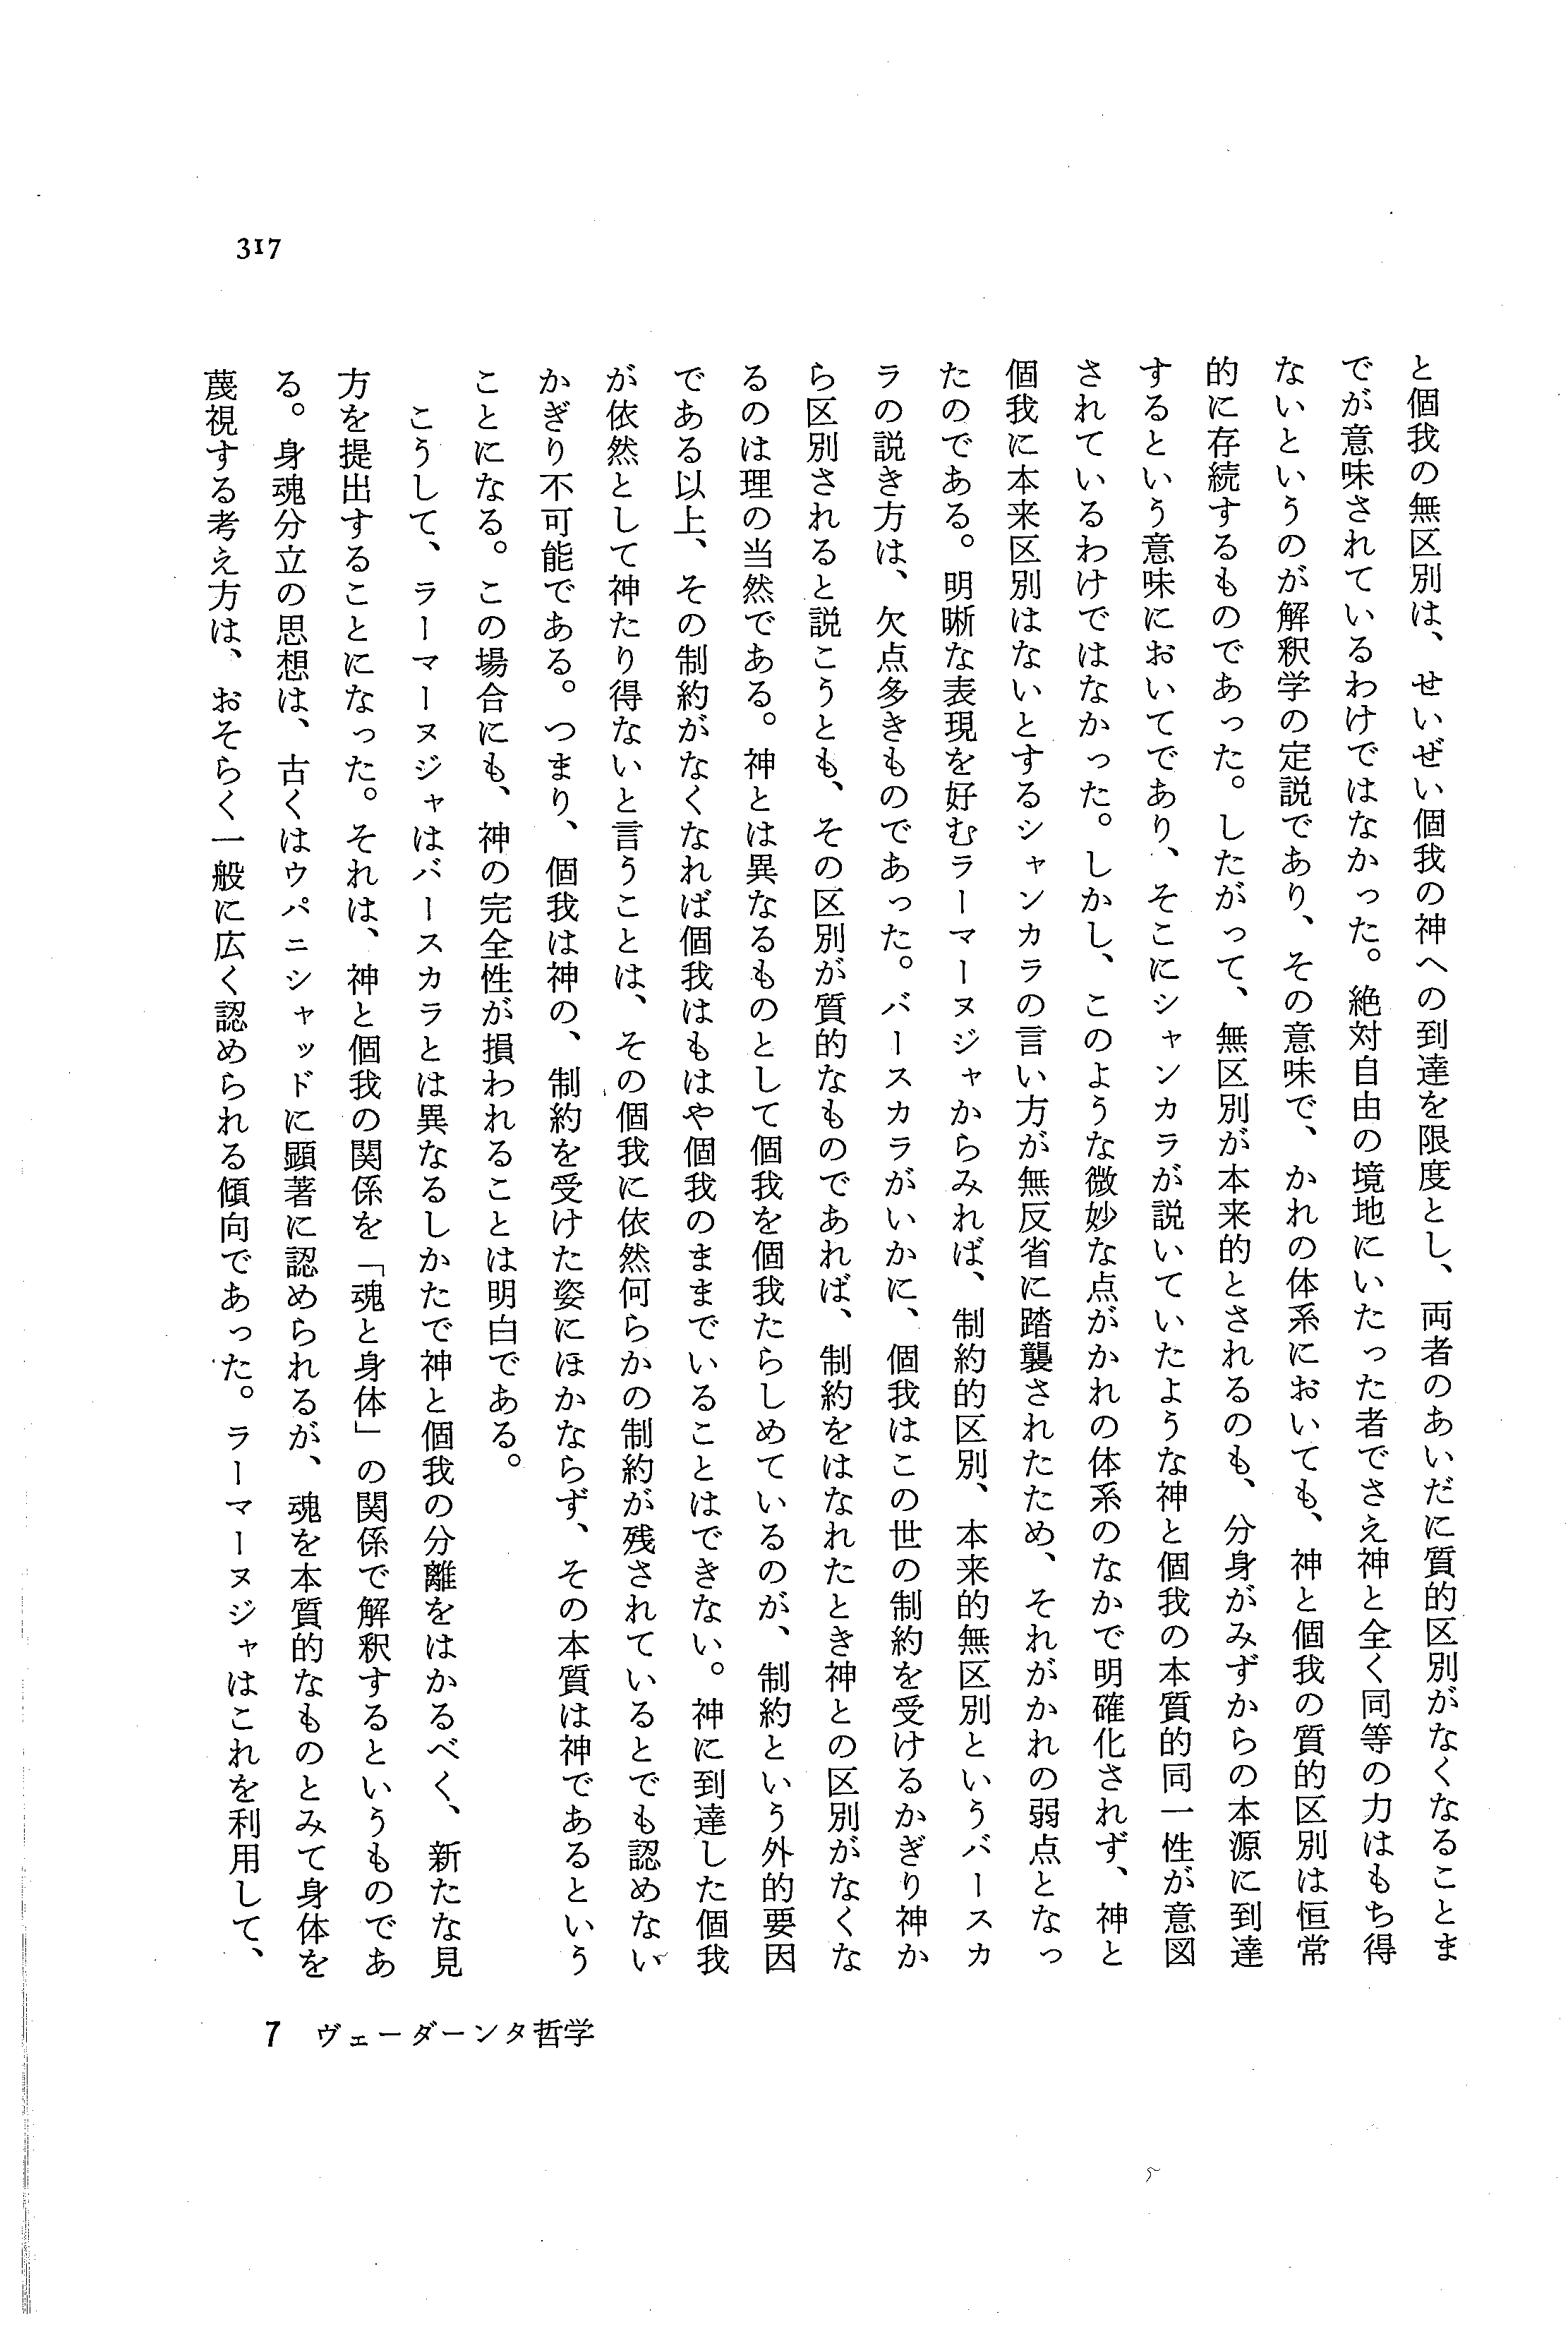 317
と個我の無区別は、せいぜい個我の神への到達を限度とし、両者のあいだに質的区別がなくなることま
でが意味されているわけではなかった。絶対自由の境地にいたった者でさえ神と全く同等の力はもち得
ないというのが解釈学の定説であり、その意味で、かれの体系においても、神と個我の質的区別は恒常
的に存続するものであった。したがって、無区別が本来的とされるのも、分身がみずからの本源に到達
するという意味においてであり、そこにシャンカラが説いていたような神と個我の本質的同一性が意図
されているわけではなかった。しかし、このような微妙な点がかれの体系のなかで明確化されず、神と
個我に本来区別はないとするシャンカラの言い方が無反省に踏襲されたため、それがかれの弱点となっ
たのである。明晰な表現を好むラーマーヌジャからみれば、制約的区別、本来的無区別というバースカ
ラの説き方は、欠点多きものであった。バースカラがいかに、個我はこの世の制約を受けるかぎり神か
ら区別されると説こうとも、その区別が質的なものであれば、制約をはなれたとき神との区別がなくな
るのは理の当然である。神とは異なるものとして個我を個我たらしめているのが、制約という外的要因
である以上、その制約がなくなれば個我はもはや個我のままでいることはできない。神に到達した個我
が依然として神たり得ないと言うことは、その個我に依然何らかの制約が残されているとでも認めない
かぎり不可能である。つまり、個我は神の、制約を受けた姿にほかならず、その本質は神であるという
ことになる。この場合にも、神の完全性が損われることは明白である。
こうして、ラーマーヌジャはバースカラとは異なるしかたで神と個我の分離をはかるべく、新たな見
方を提出することになった。それは、神と個我の関係を「魂と身体」の関係で解釈するというものであ
る。身魂分立の思想は、古くはウパニシャッドに顕著に認められるが、魂を本質的なものとみて身体を
蔑視する考え方は、おそらく一般に広く認められる傾向であった。ラーマーヌジャはこれを利用して、
7 ヴェーダーンタ哲学